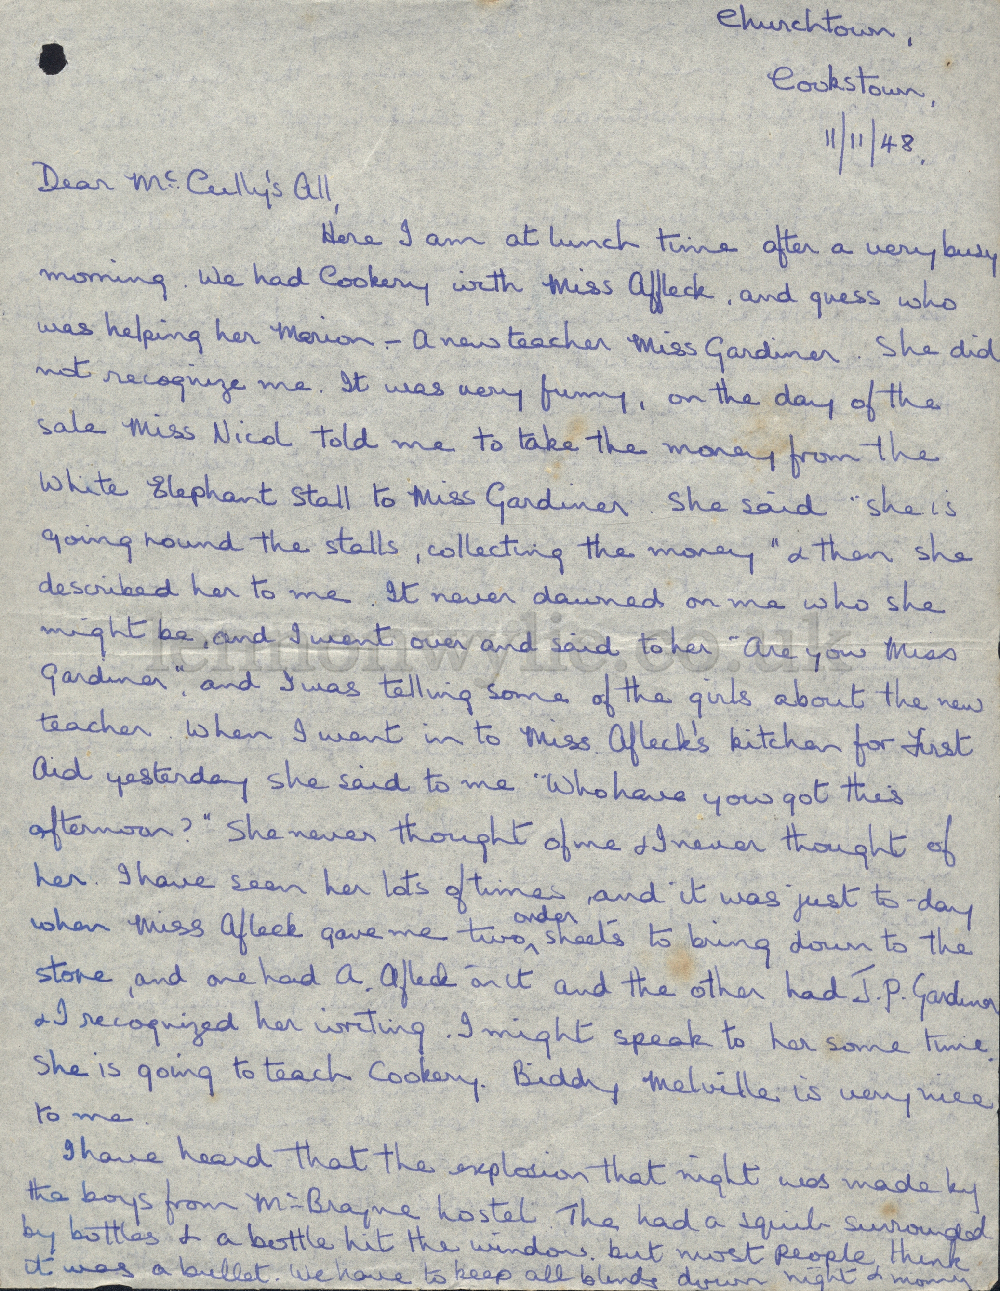 Churchtown,
Cookstown,
11/11/48.
Dear Mc Cully's All,
Here I am at lunch time after a very busy
morning. We had Cookery with Miss Affleck, and guess who
was helping her Marion - A new teacher Miss Gardiner. She did
not recognize me. It was very funny, on the day of the
sale Miss Nicol told me to take the money from the
White Elephant Stall to Miss Gardiner. She said "she is
going round the stalls, collecting the money" & then she
described her to me. It never dawned on me who she
might be, and I went over and said to her "Are you Miss
lennonwylie.co.uk
Gardiner", and I was telling some of the girls about the new
teacher. When I went in to Miss Afleck's kitchen for First
Aid yesterday she said to me "Who have you got this
afternoon?" She never thought of me & I never thought of
her. I have seen her lots of times, and it was just to-day
when Miss Afleck gave me two order sheets to bring down to the
store, and one had A. Afleck on it and the other had J.P. Gardiner
& I recognized her writing. I might speak to her some time.
She is going to teach Cookery. Biddy Melville is very nice
to me.
I have heard that the explosion that night was made by
the boys from McBrayne hostel. The had a squib surrounded
by bottles & a bottle hit the window. but most people think
it was a bullet. We have to keep all blinds down night & morning